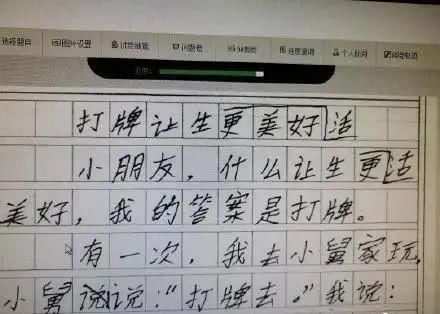 选择题组 图片设置 试卷抽查 问题卷 分数段 进度查询 个人批阅 阅卷轨迹
打牌让生更美好活
小朋友，什么让生更活
美好，我的答案是打牌。
有一次，我去小舅家玩，
小舅说说：“打牌去。”我说：